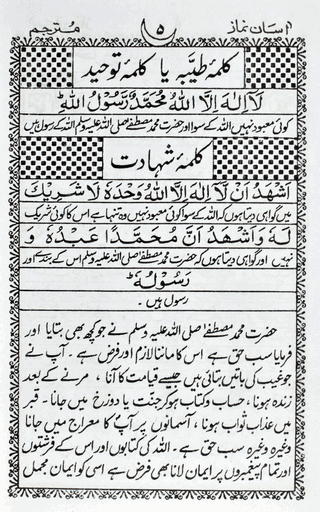 آسان نماز
۵
مترجم
کلمۂ طیّبہ یا کلمۂ توحید
لَا اِلٰهَ اِلَّا اللّٰهُ مُحَمَّدٌ رَّسُوْلُ اللّٰهِ
کوئی معبود نہیں اللہ کے سوا اور حضرت محمد مصطفےٰ صلی اللہ علیہ وسلم اللہ کے رسول ہیں
کلمۂ شہادت
اَشْهَدُ اَنْ لَّا اِلٰهَ اِلَّا اللّٰهُ وَحْدَهٗ لَا شَرِيْكَ
میں گواہی دیتا ہوں کہ اللہ کے سوا کوئی معبود نہیں وہ تنہا ہے اس کا کوئی شریک
لَهٗ وَاَشْهَدُ اَنَّ مُحَمَّدًا عَبْدُهٗ وَ
نہیں اور گواہی دیتا ہوں کہ حضرت محمد مصطفےٰ صلی اللہ علیہ وسلم اس کے بندے اور
رَسُوْلُهٗ
رسول ہیں۔
حضرت محمد مصطفےٰ صلی اللہ علیہ وسلم نے جو کچھ بھی بتایا اور
فرمایا سب حق ہے اس کا ماننا لازم اور فرض ہے۔ آپ نے
جو غیب کی باتیں بتائی ہیں جیسے قیامت کا آنا، مرنے کے بعد
زندہ ہونا، حساب و کتاب ہو کر جنّت یا دوزخ میں جانا۔ قبر
میں عذاب ثواب ہونا، آسمانوں پر آپؐ کا معراج میں جانا
وغیرہ وغیرہ سب حق ہے۔ اللہ کی کتابوں اور اس کے فرشتوں
اور تمام پیغمبروں پر ایمان لانا بھی فرض ہے اسی کو ایمان مجمل